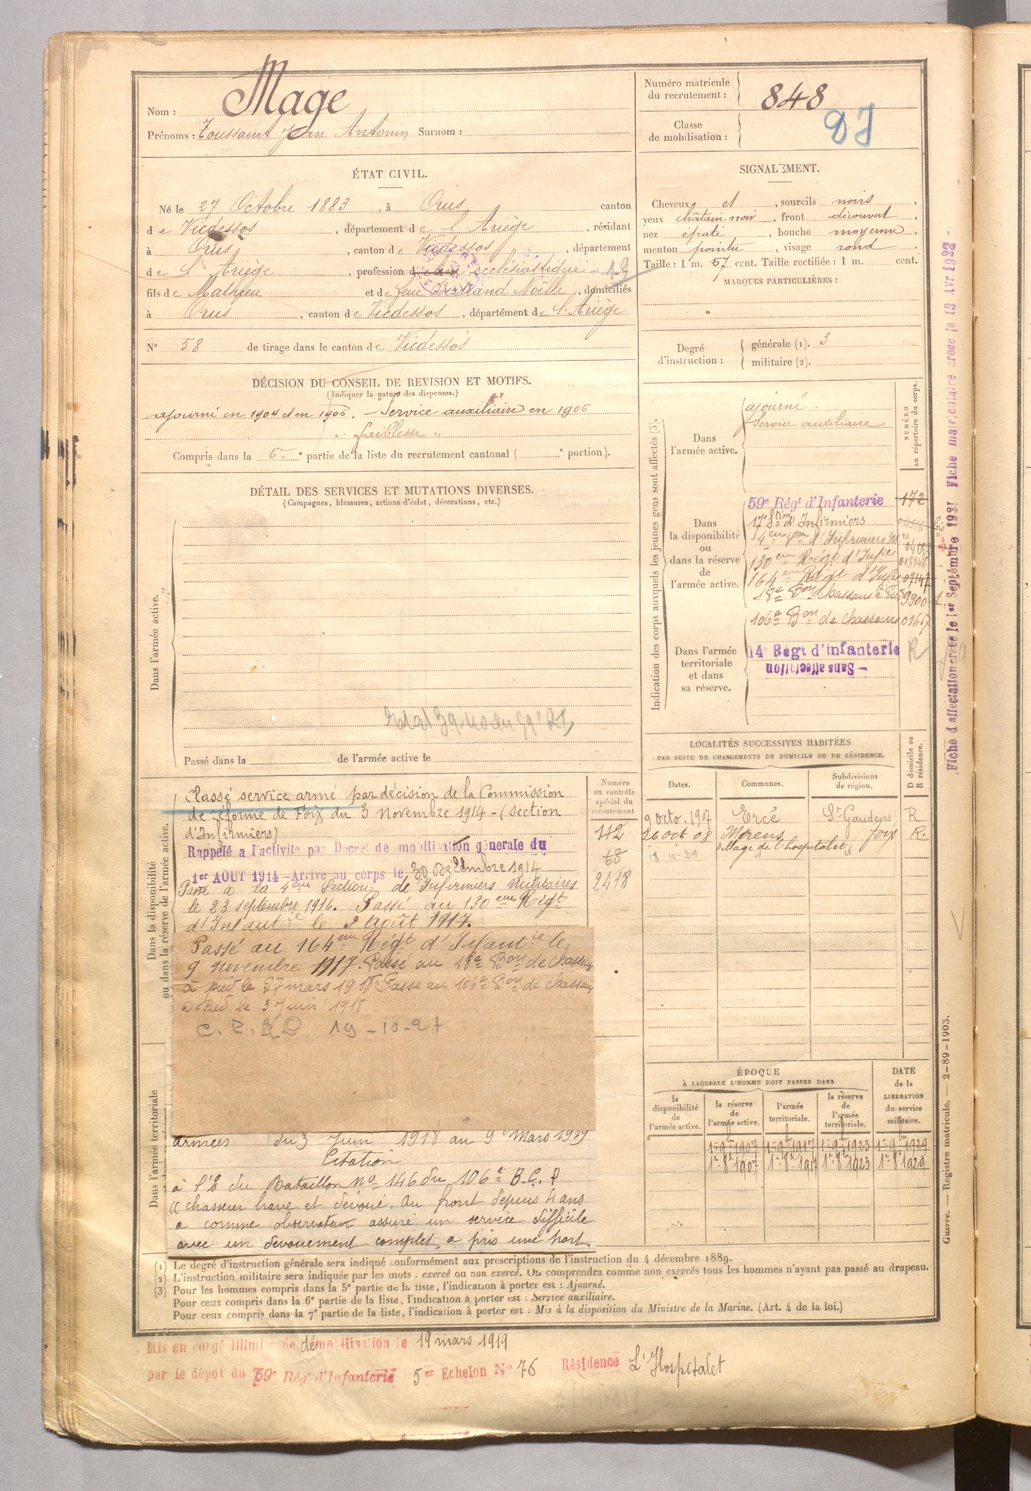 Nom : Mage
Prénoms : Toussaint Jean Antonin Surnom :
Numéro matricule du recrutement : 848
Classe de mobilisation :
ÉTAT CIVIL.
Né le 27 Octobre 1883, à Orus canton
de Vicdessos, département de l'Ariège, résidant
à Orus, canton de Vicdessos, département
de l'Ariège, profession d ecclésiastique
fils de Mathieu et de feue Noëlle, domiciliés
à Orus, canton de Vicdessos, département de l'Ariège
N° 58 de tirage dans le canton de Vicdessos
SIGNALEMENT.
Cheveux et, sourcils noirs
yeux châtain noir, front découvert
nez épaté, bouche moyenne
menton pointu, visage rond
Taille : 1 m. 57 cent. Taille rectifiée : 1 m. cent.
MARQUES PARTICULIÈRES :
Degré d'instruction : générale (1). 3
militaire (2).
DÉCISION DU CONSEIL DE REVISION ET MOTIFS.
(Indiquer la nature des dispenses.)
ajourné en 1904 et en 1905. - Service auxiliaire en 1906
" faiblesse "
Compris dans la 6e partie de la liste du recrutement cantonal ( e portion).
DÉTAIL DES SERVICES ET MUTATIONS DIVERSES.
(Campagnes, blessures, actions d'éclat, décorations, etc.)
Dans l'armée active.
Passé dans la de l'armée active le
Indication des corps auxquels les jeunes gens sont affectés (3).
NUMÉRO au répertoire du corps.
Dans l'armée active.
ajourné
Service auxiliaire
Dans la disponibilité ou dans la réserve de l'armée active.
59e Régt d'Infanterie 172
17e Son d'Infirmiers
4eme Son d'Infirmiers M
130eme Régt d'Infie
164eme Régt d'Infie
18e Bon chasseurs à
106e Bon de chasseurs
Dans l'armée territoriale et dans sa réserve.
14e Regt d'infanterie R
- Sans affectation
Fiche d'affectation créée le 1er Septembre 1927 Fiche matriculaire créée le 13 Avr 1922 -
LOCALITÉS SUCCESSIVES HABITÉES
PAR SUITE DE CHANGEMENTS DE DOMICILE OU DE RÉSIDENCE.
D domicile ou R résidence.
Dates. Communes. Subdivisions de région.
9 octo. 1907 Ercé St Gaudens R
26 oct 08 Merens foix R.
village de l'hospitalet
Dans la disponibilité ou dans la réserve de l'armée active.
Numéro au contrôle spécial du recrutement
112
68
2418
Classé service armé par décision de la Commission
de réforme de Foix du 3 Novembre 1914 - (section
d'Infirmiers)
Rappelé à l'activité par Décret de mobilisation générale du
1er AOUT 1914 - Arrivé au corps le 20 Décembre 1914
Passé à la 4eme Section de Infirmiers militaires
le 23 septembre 1916. Passé au 130eme Régt
d'Infantie le 2 Août 1917.
Passé au 164eme Régt d'Infantie le
9 novembre 1917. Passé au 18e Bon de chasseurs
à pied le 27 mars 1918. Passé au 106e Bon de chasseurs
à pied le 3 Juin 1918.
19-10-27
Dans l'armée territoriale
armées du 3 Juin 1918 au 9 Mars 1919
Citation
à l'O du Bataillon No 146 du 106e B.C.P
« chasseur brave et dévoué. Au front depuis 4 ans
a comme observateur assuré un service difficile
avec un dévouement complet, a pris une part
ÉPOQUE
À LAQUELLE L'HOMME DOIT PASSER DANS
DATE de la LIBÉRATION du service militaire.
la disponibilité de l'armée active. la réserve de l'armée active. l'armée territoriale. la réserve de l'armée territoriale.
1er 8bre 1907 1er 8bre 1917 1er 8bre 1923 1er 8bre 1929
Guerre. — Registre matricule. — 2-89-1903.
(1) Le degré d'instruction générale sera indiqué conformément aux prescriptions de l'instruction du 4 décembre 1889.
(2) L'instruction militaire sera indiquée par les mots : exercé ou non exercé. On comprendra comme non exercés tous les hommes n'ayant pas passé au drapeau.
(3) Pour les hommes compris dans la 5e partie de la liste, l'indication à porter est : Ajourné.
Pour ceux compris dans la 6e partie de la liste, l'indication à porter est : Service auxiliaire.
Pour ceux compris dans la 7e partie de la liste, l'indication à porter est : Mis à la disposition du Ministre de la Marine. (Art. 4 de la loi.)
Mis en congé illimité de démobilisation le 19 mars 1919
par le dépôt du 59e Rég. d'Infanterie 5er Echelon N° 76 Résidence L'Hospitalet